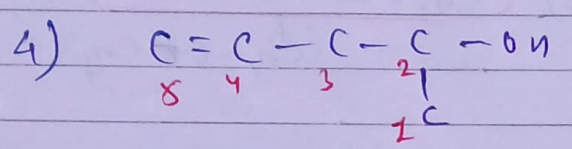 4) C = C - C - C - OH
5 4 3 2
1 C